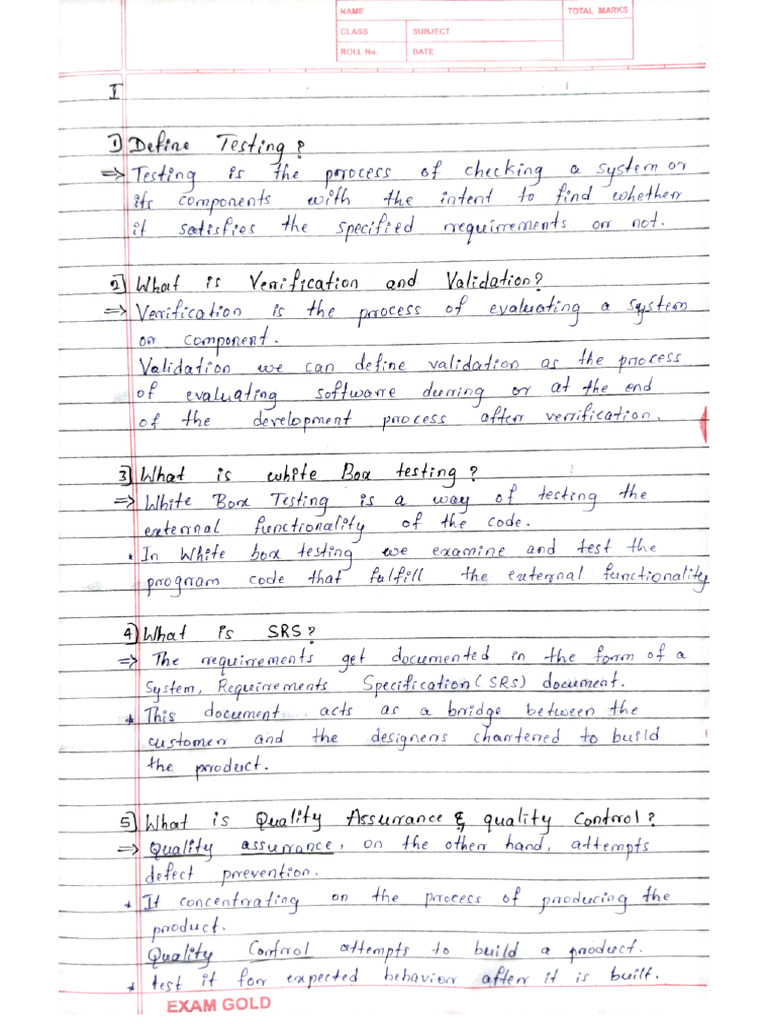 NAME
TOTAL MARKS
CLASS
SUBJECT
ROLL No.
DATE
I
1) Define Testing?
⇒ Testing is the process of checking a system or
its components with the intent to find whether
it satisfies the specified requirements or not.
2) What is Verification and Validation?
⇒ Verification is the process of evaluating a system
or component.
Validation we can define validation as the process
of evaluating software during or at the end
of the development process after verification.
3) What is white Box testing?
⇒ White Box Testing is a way of testing the
external functionality of the code.
* In White box testing we examine and test the
program code that fulfill the external functionality
4) What is SRS?
⇒ The requirements get documented in the form of a
System, Requirements Specification (SRS) document.
* This document acts as a bridge between the
customer and the designers chartered to build
the product.
5) What is Quality Assurance & quality Control?
⇒ Quality assurance, on the other hand, attempts
defect prevention.
* It concentrating on the process of producing the
product.
Quality Control attempts to build a product.
* test it for expected behavior after it is built.
EXAM GOLD